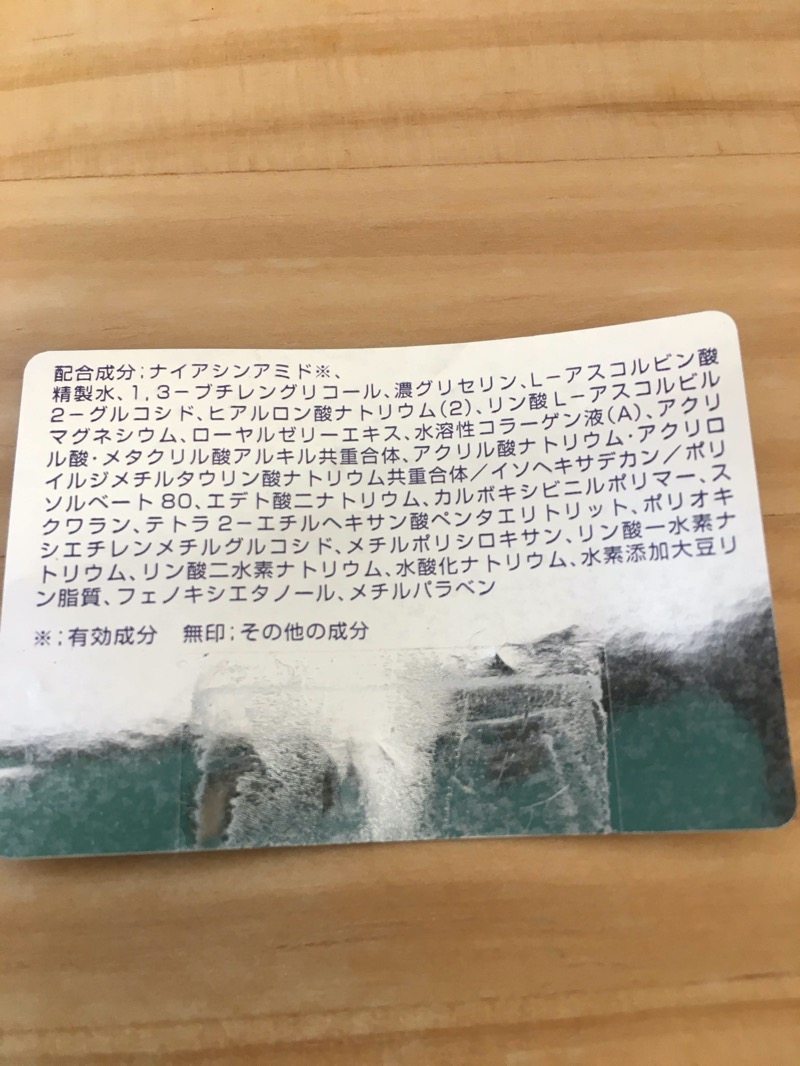 配合成分;ナイアシンアミド※、
精製水、1,3−ブチレングリコール、濃グリセリン、L−アスコルビン酸
2−グルコシド、ヒアルロン酸ナトリウム(2)、リン酸L−アスコルビル
マグネシウム、ローヤルゼリーエキス、水溶性コラーゲン液(A)、アクリ
ル酸・メタクリル酸アルキル共重合体、アクリル酸ナトリウム・アクリロ
イルジメチルタウリン酸ナトリウム共重合体/イソヘキサデカン/ポリ
ソルベート80、エデト酸二ナトリウム、カルボキシビニルポリマー、ス
クワラン、テトラ2−エチルヘキサン酸ペンタエリトリット、ポリオキ
シエチレンメチルグルコシド、メチルポリシロキサン、リン酸一水素ナ
トリウム、リン酸二水素ナトリウム、水酸化ナトリウム、水素添加大豆リ
ン脂質、フェノキシエタノール、メチルパラベン
※;有効成分 無印;その他の成分